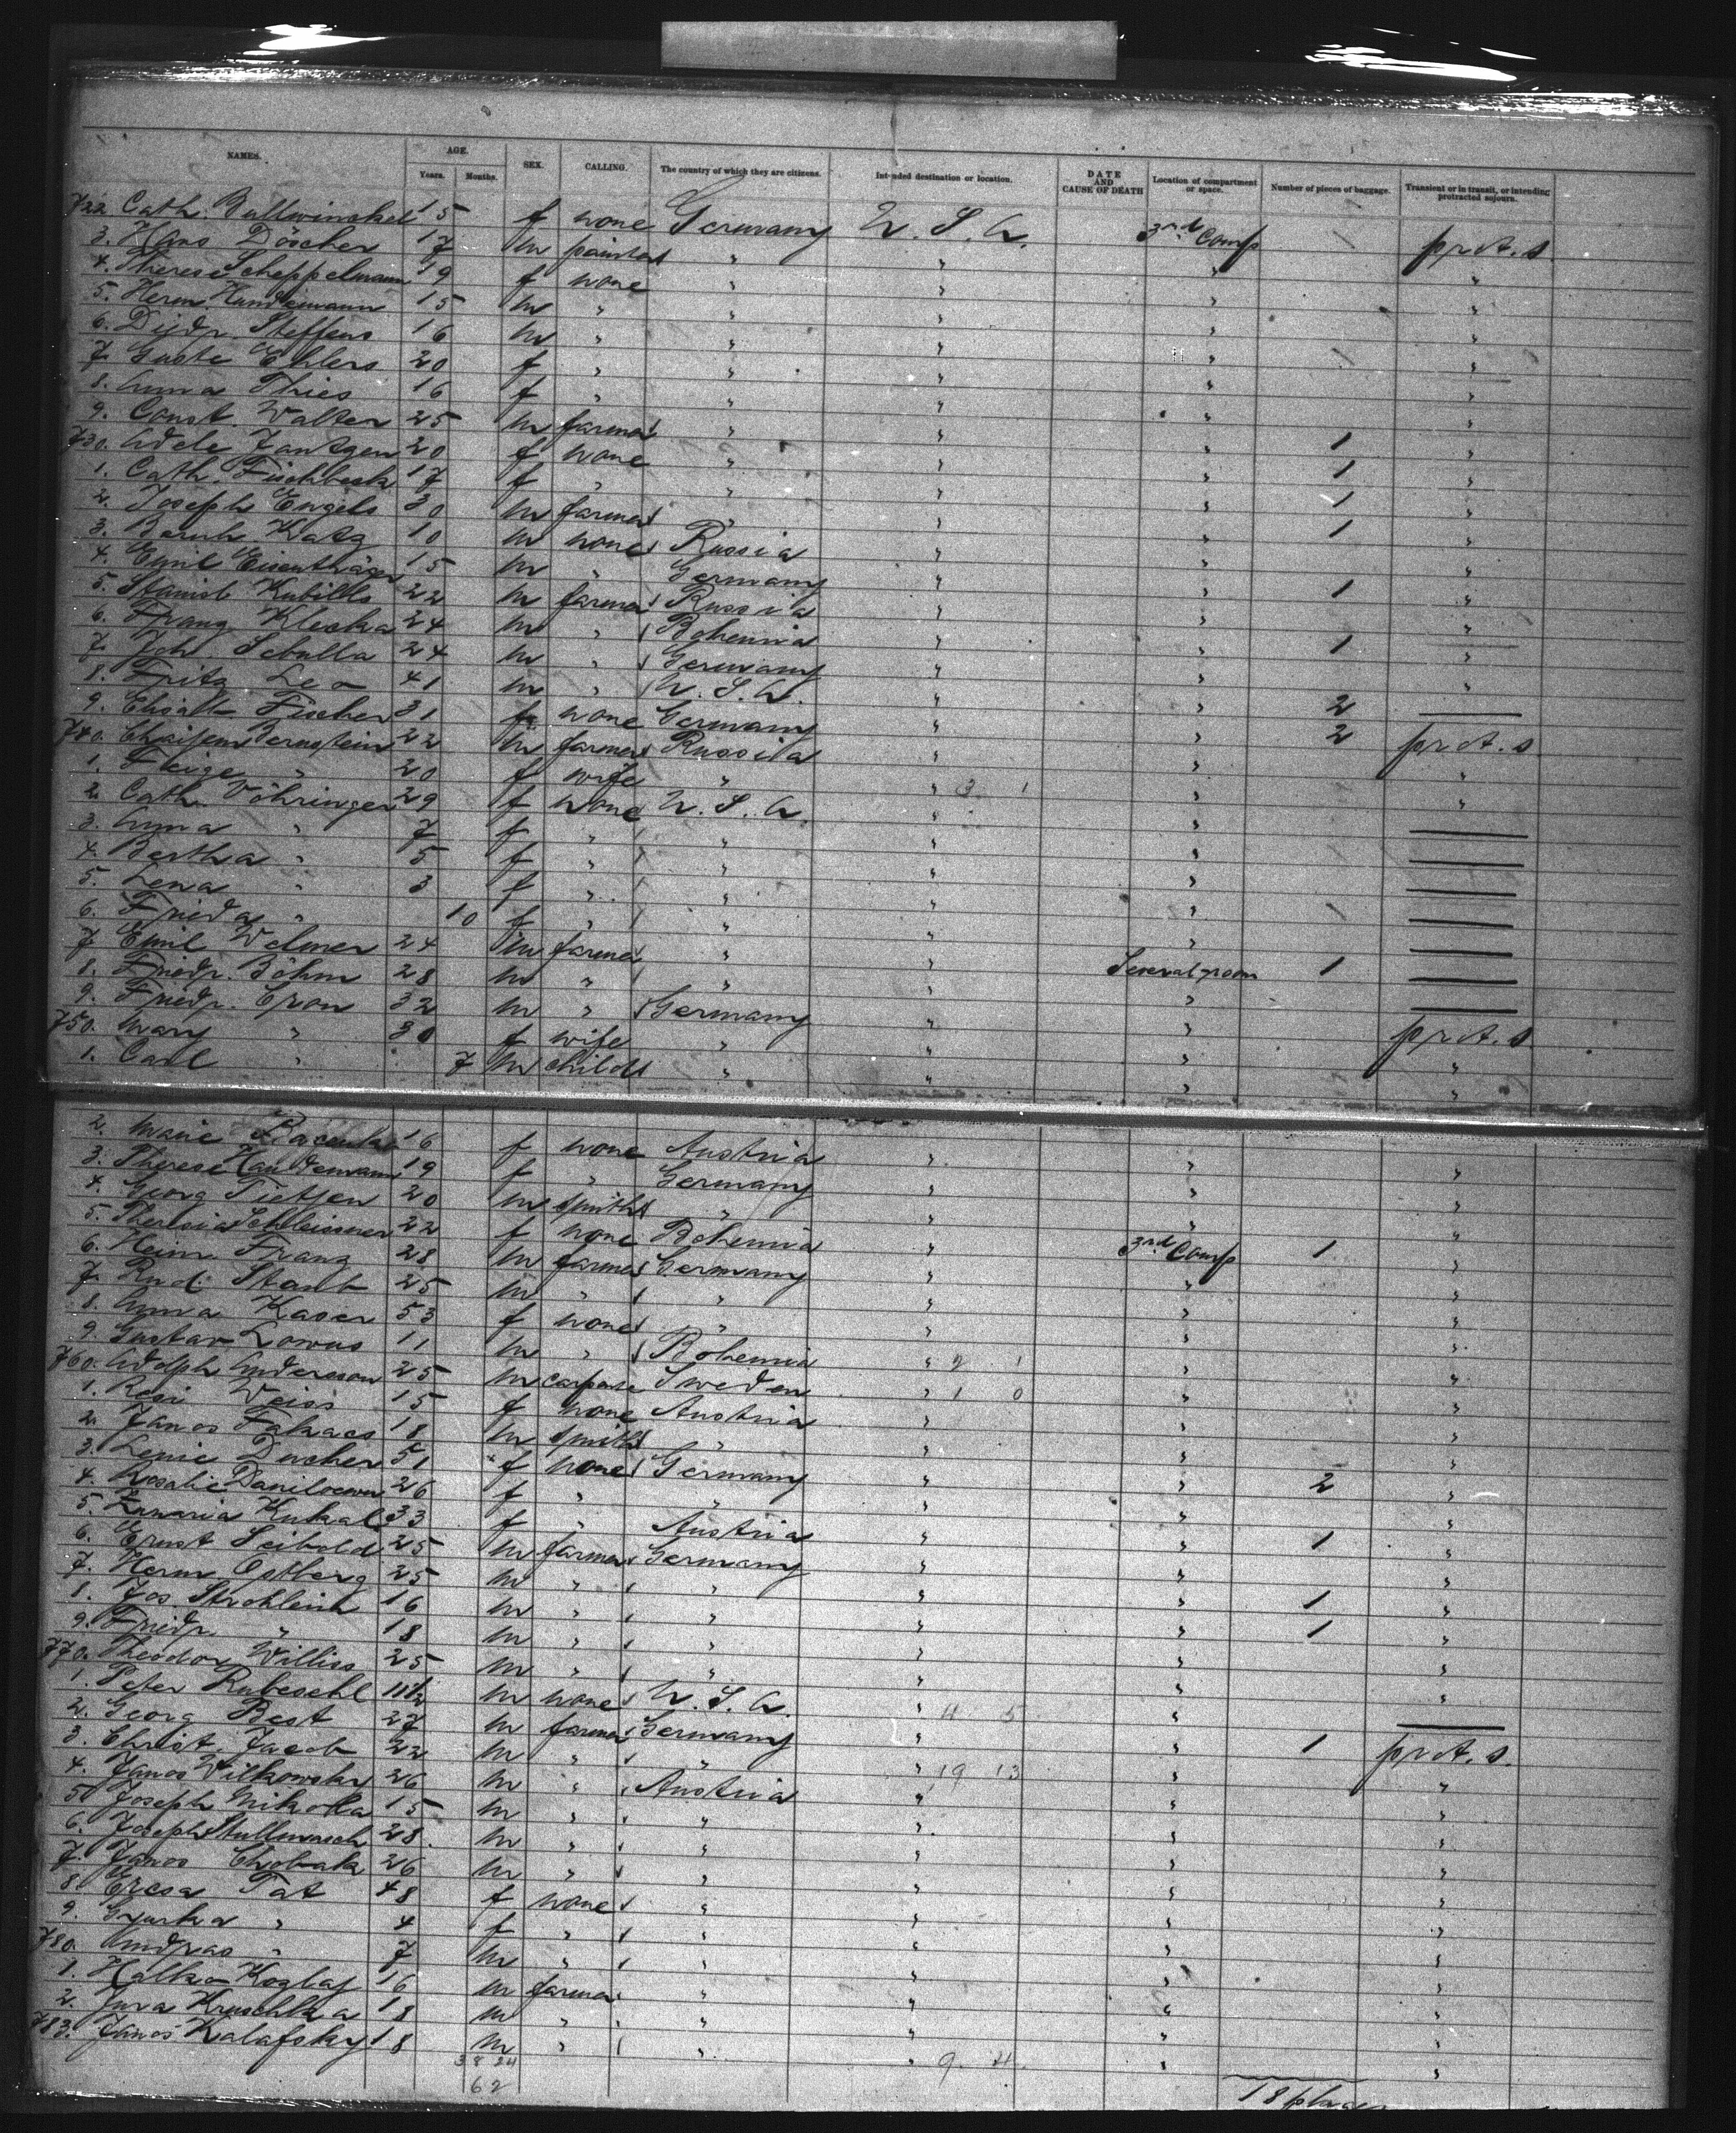 NAMES. AGE. Years. Months. SEX. CALLING. The country of which they are citizens. Intended destination or location. DATE AND CAUSE OF DEATH Location of compartment or space. Number of pieces of baggage. Transient or in transit, or intending protracted sojourn.
722 Cath. Bullwinkel 15 f none Germany U. S. A. 3rd Comp prot. s
3. Hans Döscher 17 m painter " " " "
4. Therese Scheppelmann 19 f none " " " "
5. Herm Hundemann 15 m " " " " "
6. Diedr. Steffens 16 m " " " " "
7. Guste Ehlers 20 f " " " " "
8. Anna Thies 16 f " " " " "
9. Const. Walter 25 m farmer " " " 1 "
730. Adele Jantzen 20 f none " " " 1 "
1. Cath. Fischbeck 17 f " " " " 1 "
2. Joseph Engels 30 m farmer " " " 1 "
3. Bernh. Katz 10 m none Russia " " "
4. Emil Eisenträger 15 m " Germany " " 1 "
5. Stanisl. Kubills 22 m farmer Russia " " "
6. Franz Kleska 24 m " Bohemia " " 1 "
7. Joh. Sebulla 24 m " Germany " " "
8. Fritz Leo 41 m " U. S. A. " " 2
9. Elisab. Fischer 31 f none Germany " " 2 prot. s
740. Chaijem Bernstein 22 m farmer Russia " " "
1. Feige " 20 f wife " " 3 1 " "
2. Cath. Vöhringer 29 f none U. S. A. " "
3. Anna " 7 f " " " "
4. Bertha " 5 f " " " "
5. Lena " 3 f " " " "
6. Frieda " 10 f " " " "
7 Emil Velmer 24 m farmer " " Several room 1
8. Friedr. Böhm 28 m " " " "
9. Friedr. Cron 32 m " Germany " " prot. s
750. Mary " 30 f wife " " " "
1. Carl " 7 m child " " " "
2. Marie 16 f none Austria " " "
3. Therese Handemann 19 f " Germany " " "
4. Georg Tietjen 20 m smith " " " "
5. Theresia Schleissner 22 f none Bohemia " 3rd Comp 1 "
6. Heinr. Franz 28 m farmer Germany " " "
7. Rud. Staub 25 m " " " " "
8. Anna Kaser 53 f none " " " "
9. Gustav Lowus 11 m " Bohemia " 2 1 " "
760. Adolph Anderson 25 m Sweden " 1 0 " "
1. Rosi Weiss 15 f none Austria " " "
2. Janos Takacs 18 m smith " " " "
3. Lenie Ducher 51 f none Germany " " 2 "
4. Rosalie 26 f " " " " "
5. Kukal 33 f " Austria " " 1 "
6. Ernst Seibold 25 m farmer Germany " " "
7. Herm Ostberg 25 m " " " " 1 "
8. Jos. Strohlein 16 m " " " " 1 "
9. Friedr. " 18 m " " " " "
770. Theodor Williss 25 m " " " " "
1. Peter Rubeschl 11 1/2 m none U. S. A. " 4 5 "
2. Georg Best 27 m farmer Germany " " 1 prot. s.
3. Christ. Jacob 22 m " " " 19 13 " "
4. Janos Wilkowsky 26 m " Austria " " "
5 Joseph Mikolla 15 m " " " " "
6. Joseph Stullmasch 28. m " " " " "
7. Janos Chobak 26 m " " " " "
8. Eresa Tat 48 f none " " " "
9. Gyurka " 4 f " " " " "
780. Andras " 7 m " " " " "
1. Halko Kozlaj 16 m farmer " " " "
2. Jura Kruschka 18 m " " " " "
783. Janos Kalafsky 18 m " " " 9 4 " "
38 24
62
18